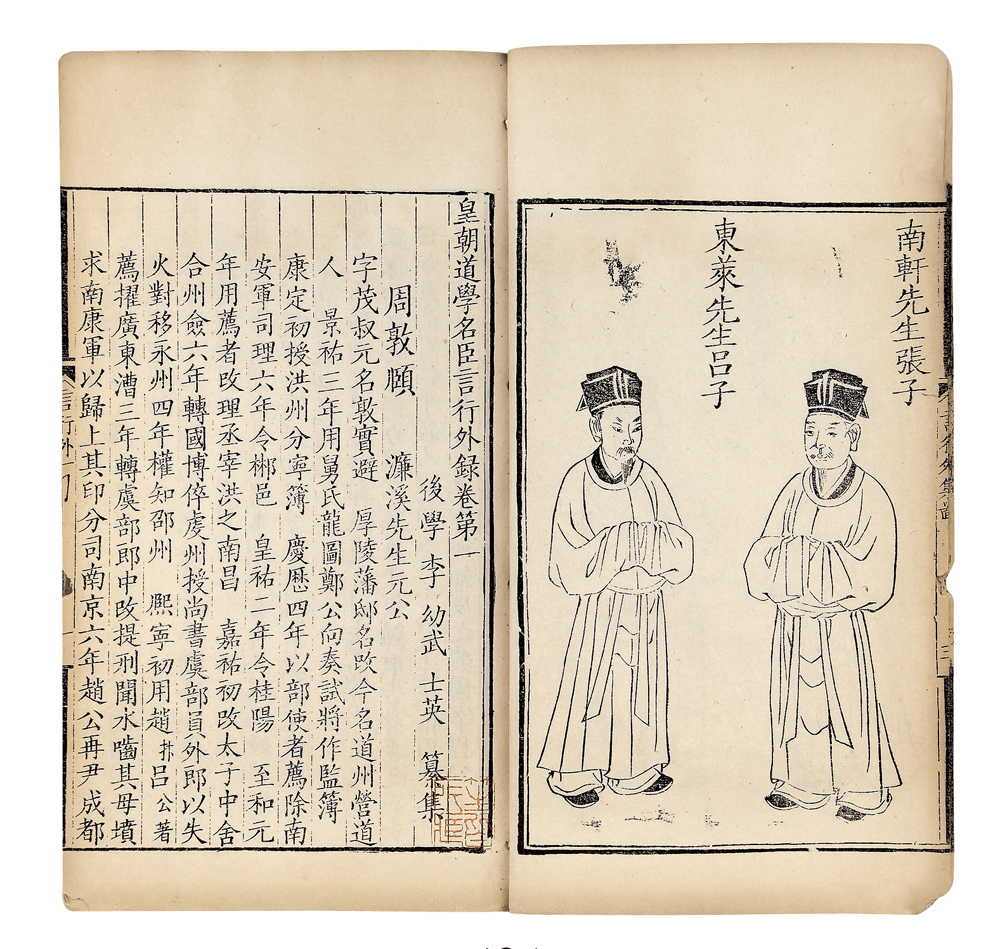 南軒先生張子
東萊先生呂子
皇朝道學名臣言行外録卷第一
後學李幼武士英纂集
周敦頤 濂溪先生元公
字茂叔元名敦實避 厚陵藩邸名改今名道州營道
人 景祐三年用舅氏龍圖鄭公向奏試將作監簿
康定初授洪州分寧簿 慶歷四年以部使者薦除南
安軍司理六年令郴邑 皇祐二年令桂陽 至和元
年用薦者改理丞宰洪之南昌 嘉祐初改太子中舍
合州僉六年轉國博倅虔州授尚書虞部員外郎以失
火對移永州四年權知邵州 熙寧初用趙抃呂公著
薦擢廣東漕三年轉虞部郎中改提刑聞水嚙其母墳
求南康軍以歸上其印分司南京六年趙公再尹成都
言行外一